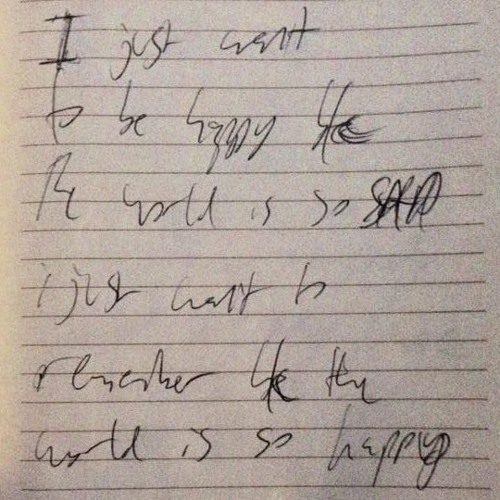 I just want
to be happy like
the world is so SAD
i just want to
remember like the
world is so happy